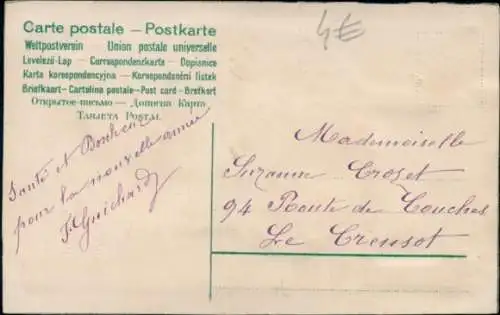 Carte postale — Postkarte
Weltpostverein — Union postale universelle
Levelező-Lap — Correspondenzkarte — Dopisnice
Karta korespondencyjna — Korespondenční lístek
Briefkaart — Cartolina postale — Post card — Brefkort
Открытое письмо — Дописна Карта
Tarjeta Postal
4€
Santé et Bonheur
pour la nouvelle année
F. Guichard
Mademoiselle
Suzanne Crozet
94 Route de Couches
Le Creusot